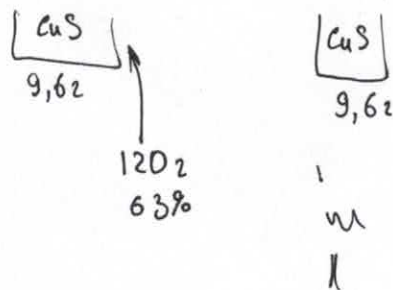 CuS
9,6г
120г
63%
CuS
9,6г